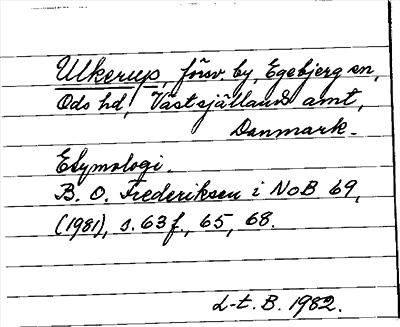 Ulkerup, försv. by, Egebjerg sn,
Ods hd, Västsjällands amt,
Danmark.
Etymologi.
B. O. Frederiksen i NoB 69,
(1981), s. 63 f., 65, 68.
L-t. B. 1982.